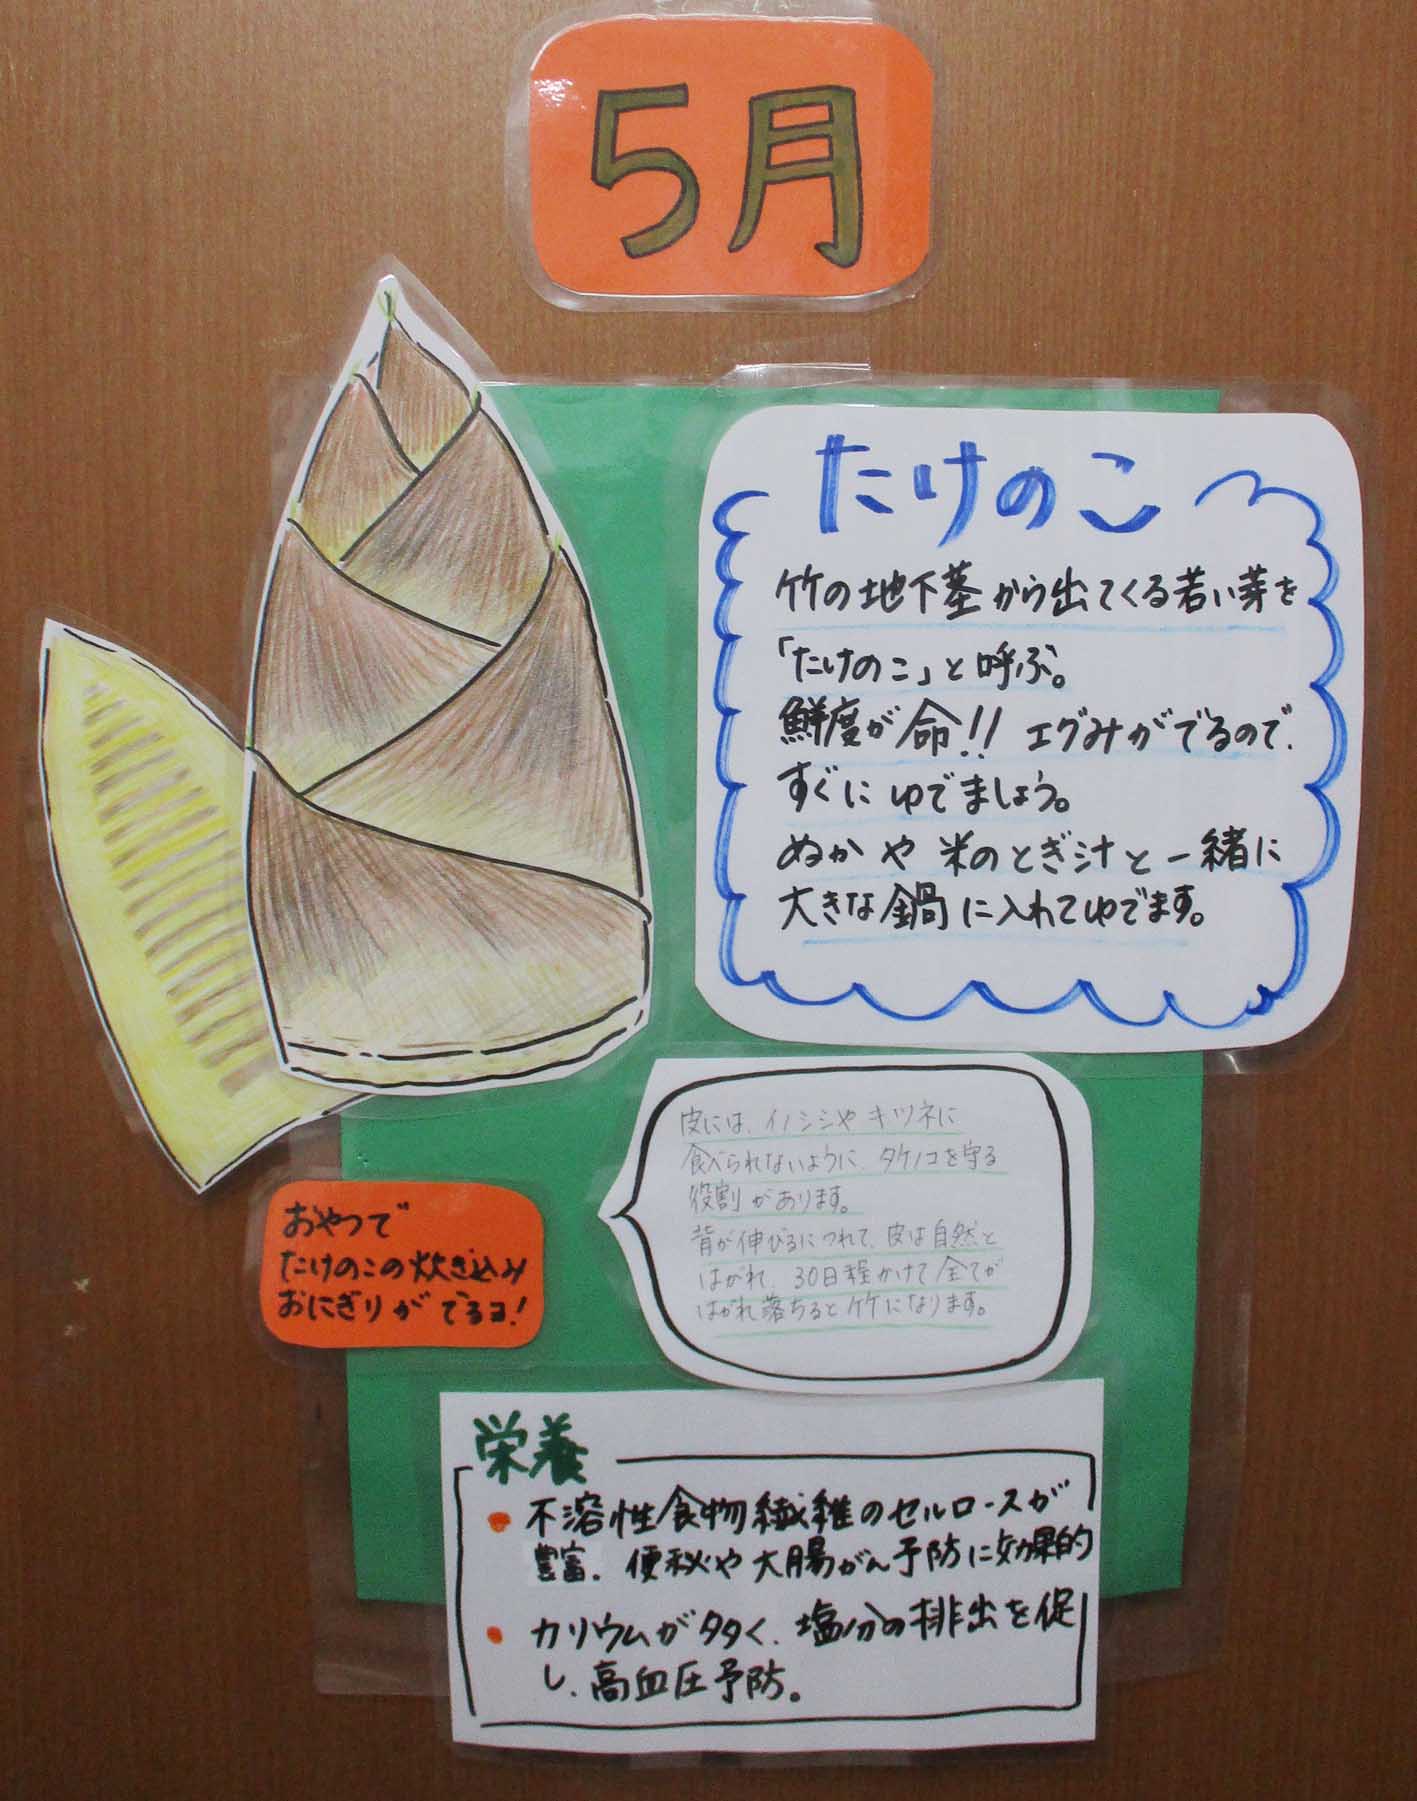 5月
たけのこ
竹の地下茎から出てくる若い芽を
「たけのこ」と呼ぶ。
鮮度が命!! エグみがでるので、
すぐにゆでましょう。
ぬかや米のとぎ汁と一緒に
大きな鍋に入れてゆでます。
皮には、イノシシやキツネに
食べられないように、タケノコを守る
役割があります。
背が伸びるにつれて、皮は自然と
はがれ、30日程かけて全てが
はがれ落ちると竹になります。
おやつで
たけのこの炊き込み
おにぎりがでるヨ!
栄養
• 不溶性食物繊維のセルロースが
豊富。便秘や大腸がん予防に効果的
• カリウムが多く、塩分の排出を促
し、高血圧予防。